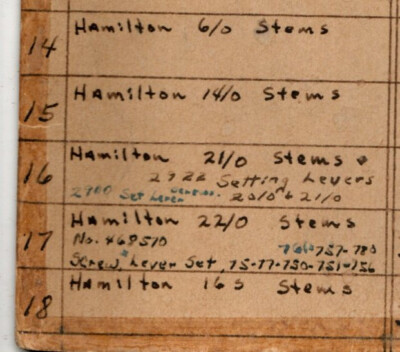 14 Hamilton 6/0 Stems
15 Hamilton 14/0 Stems
16 Hamilton 21/0 Stems
2922 Setting Levers
2900 Set Lever 20/0 & 21/0
17 Hamilton 22/0 Stems
No. #68510 757-780
Screw, Lever Set, 75-77-750-751-756
18 Hamilton 16 s Stems